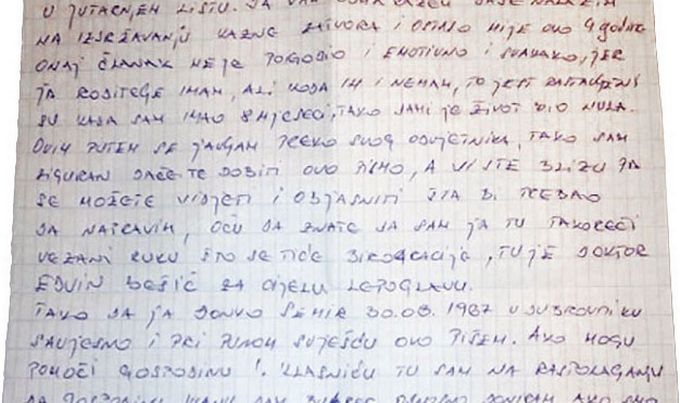 U JUTARNJEM LISTU. JA VAM ODMAH KAŽEM DA SE NALAZIM
NA IZDRŽAVANJU KAZNE ZATVORA I OSTALO MI JE OVO 9 GODINA
ONAJ ČLANAK ME JE POGODIO I EMOTIVNO I SVAKAKO, JER
JA RODITELJE IMAM, ALI KODA IH I NEMAM, TO JEST RASTAVLJENI
SU KADA SAM IMAO 8 MJESECI, TAKO DA MI JE ŽIVOT BIO NULA.
OVIM PUTEM SE JAVLJAM PREKO SVOG ODVJETNIKA, TAKO SAM
SIGURAN DA ĆETE DOBITI OVO PISMO, A VI STE BLIZU PA
SE MOŽETE VIDJETI I OBJASNITI ŠTA BI TREBAO
DA NAPRAVIM, OĆU DA ZNATE DA SAM JA TU TAKOREĆI
VEZANI RUKU ŠTO SE TIČE BIROKRACIJE, TU JE DOKTOR
EDVIN BEŠIĆ ZA CIJELU LEPOGLAVU.
TAKO DA JA SEMIR 30.03.1987 U DUBROVNIKU
SAVJESNO I PRI PUNOJ SVIJESTI OVO PIŠEM. AKO MOGU
POMOĆI GOSPODINU I. KLASNIĆU TU SAM NA RASPOLAGANJU